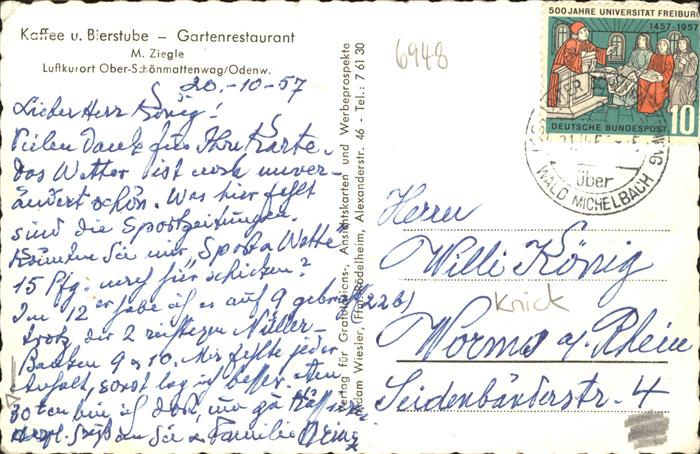 Kaffee u. Bierstube – Gartenrestaurant
M. Ziegle
Luftkurort Ober-Schönmattenwag/Odenw.
20.-10-57
Lieber Herr König!
Vielen Dank für Ihre Karte.
Das Wetter ist noch unver-
ändert schön. Was hier fehlt
sind die Sportzeitungen.
Könnten Sie mir Sport a Wette
15 Pfg. nach hier schicken?
Im 12 er habe ich es auf 9 gebracht (22 b)
trotz der 2 richtigen
9 u 10. Mir fehlte jeder
Anhalt, sonst lag ich besser. Am
30ten bin ich dort,
Herzl. Grüße an Sie u Familie Heinz
Verlag für Gratulations-, Ansichtskarten und Werbeprospekte
Adam Wiesler, Ffm.-Rödelheim, Alexanderstr. 46 - Tel.: 7 61 30
6948
500 JAHRE UNIVERSITÄT FREIBURG
1457-1957
DEUTSCHE BUNDESPOST
10
über
WALD MICHELBACH
Herrn
Willi König
Knick
Worms a/Rhein
Seidenbänderstr. 4